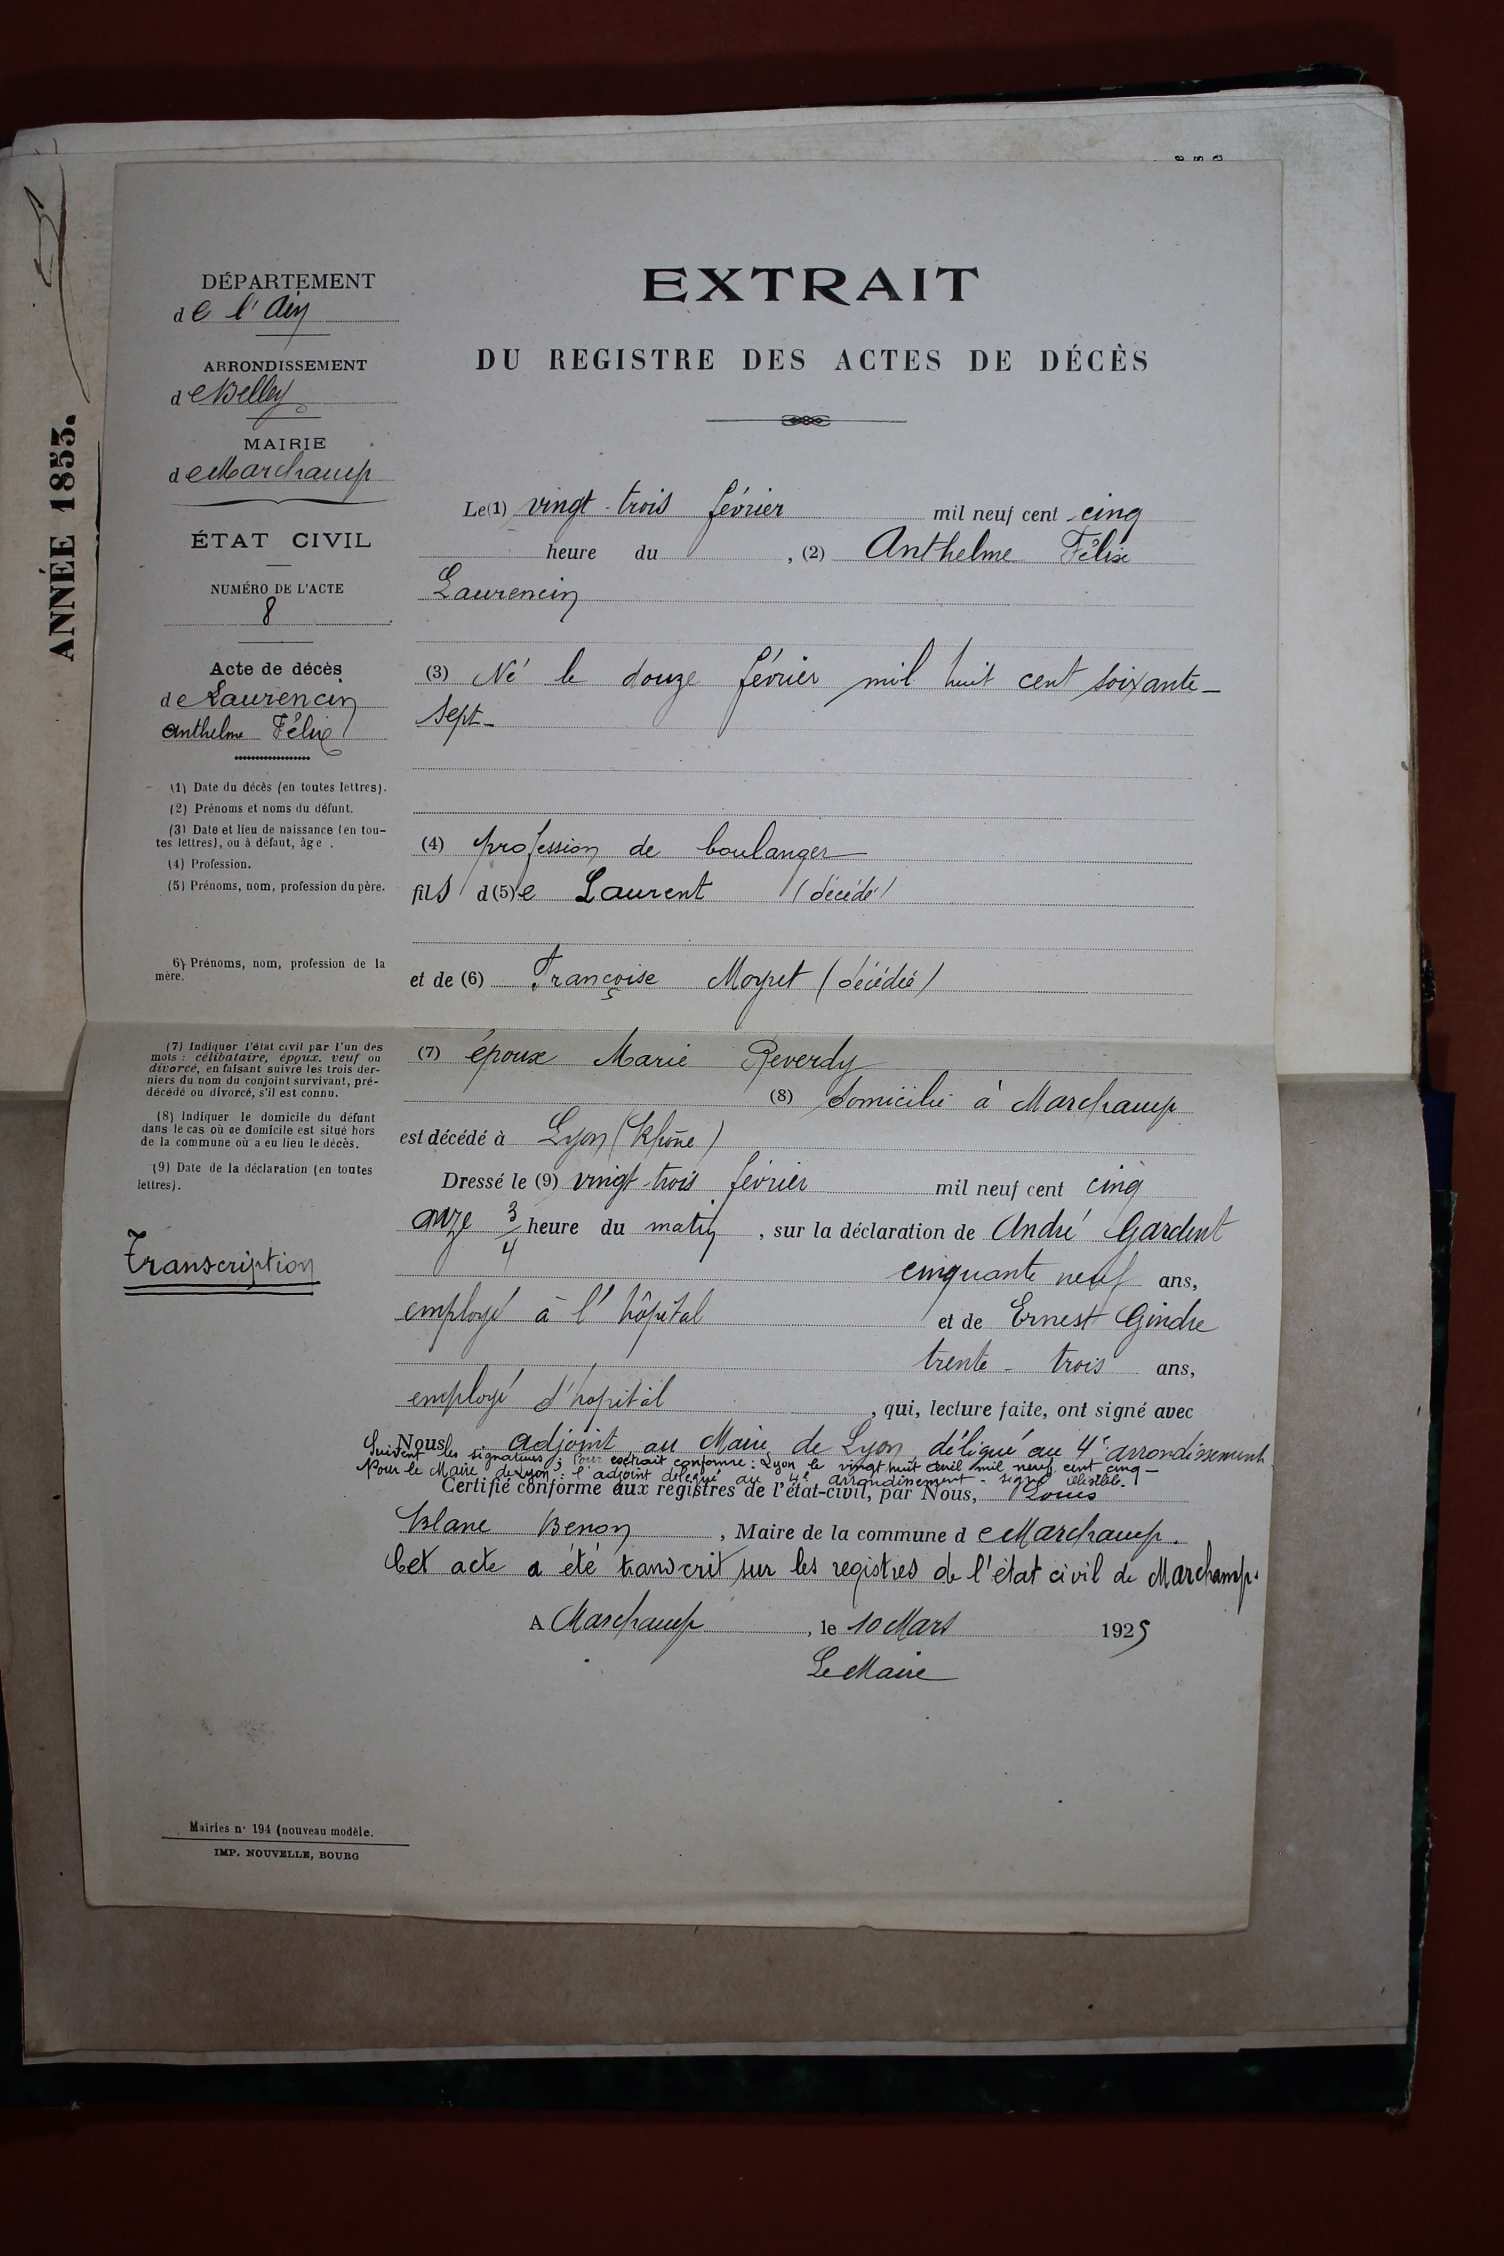 ANNÉE 1853.
DÉPARTEMENT
de l'Ain
ARRONDISSEMENT
de Belley
MAIRIE
de Marchamp
ÉTAT CIVIL
NUMÉRO DE L'ACTE
8
Acte de décès
de Laurencin
Anthelme Félix
(1) Date du décès (en toutes lettres).
(2) Prénoms et noms du défunt.
(3) Date et lieu de naissance (en tou-
tes lettres), ou à défaut, âge .
(4) Profession.
(5) Prénoms, nom, profession du père.
6) Prénoms, nom, profession de la
mère.
(7) Indiquer l'état civil par l'un des
mots : célibataire, époux. veuf ou
divorcé, en faisant suivre les trois der-
niers du nom du conjoint survivant, pré-
décédé ou divorcé, s'il est connu.
(8) Indiquer le domicile du défunt
dans le cas où ce domicile est situé hors
de la commune où a eu lieu le décès.
(9) Date de la déclaration (en toutes
lettres).
Transcription
Mairies n° 194 (nouveau modèle.
IMP. NOUVELLE, BOURG
EXTRAIT
DU REGISTRE DES ACTES DE DÉCÈS
Le (1) vingt-trois février mil neuf cent cinq
heure du , (2) Anthelme Félix
Laurencin
(3) Né le douze février mil huit cent soixante-
sept-
(4) profession de boulanger
fils d(5)e Laurent (décédé)
et de (6) Françoise Moyret (décédée)
(7) époux Marie Reverdy
(8) domicilié à Marchamp
est décédé à Lyon (Rhône)
Dressé le (9) vingt-trois février mil neuf cent cinq
onze 3/4 heure du matin , sur la déclaration de André Gardent
cinquante neuf ans,
employé à l'hôpital et de Ernest Gindre
trente-trois ans,
employé d'hôpital , qui, lecture faite, ont signé avec
Nous adjoint au Maire de Lyon délégué au 4e arrondissement
Suivent les signatures ; Pour extrait conforme : Lyon le vingt huit avril mil neuf cent cinq -
Pour le Maire de Lyon : l'adjoint délégué au 4e arrondissement - signé illisible.
Certifié conforme aux registres de l'état-civil, par Nous, Louis
Blanc Benon , Maire de la commune de Marchamp.
Cet acte a été transcrit sur les registres de l'état civil de Marchamp.
A Marchamp , le 10 Mars 1925
Le Maire